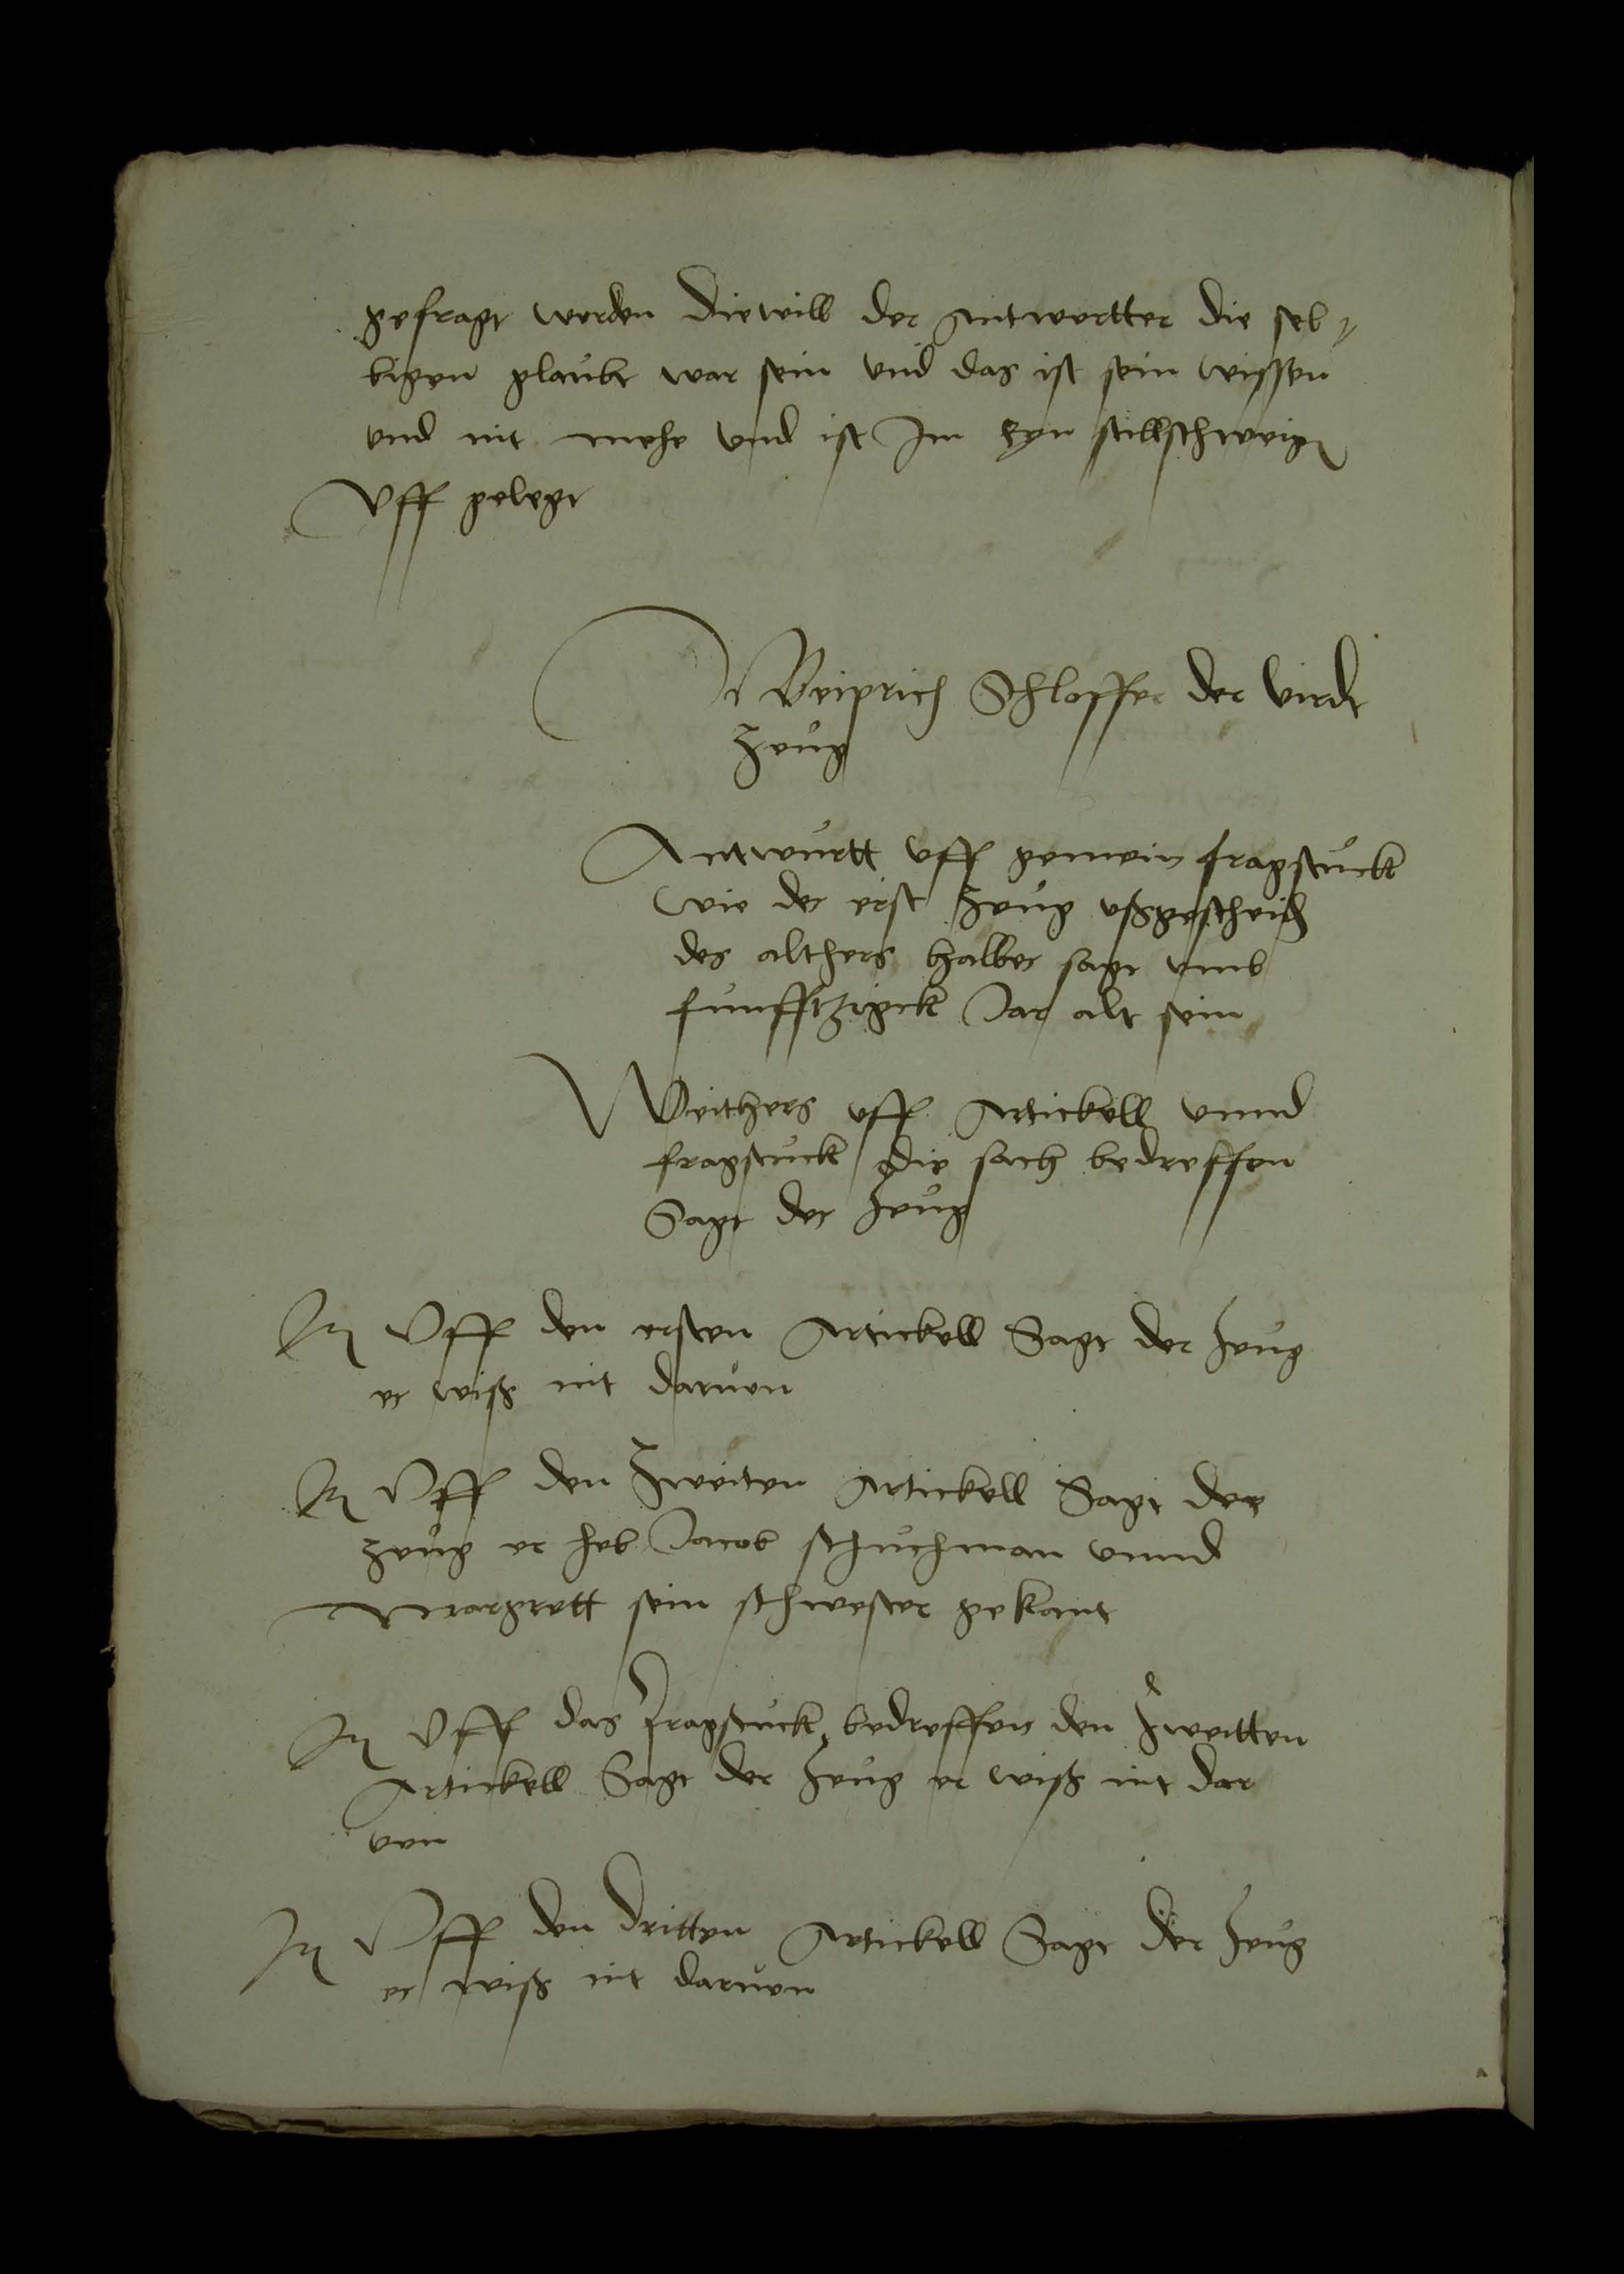 gefragt werden diewill der antwortter die sel-
bigen glaubt war sein und das ist sein wissen
und nit mehe und ist Im eyn stillschweig
Uff gelegt
Weiprich Schlosser der Virdt
Zeug
Antwurtt uff gemein fragstuck
wie der erst Zeug ußgescheid
des althers halber sagt umb
funfftzigck Jar alt sein
Weithers uff Artickell unnd
fragstuck die sach bedreffen
Sagt der Zeug
Jt Uff den ersten Artickell Sagt der Zeug
er wiß nit darvon
Jt Uff den Zweiten Artickell Sagt der
Zeug er heb Jacob schuchman unnd
Margrett sein schwester gekant
Jt Uff das fragstuck bedreffen den Zweitten
Artickell Sagt der Zeug er wiß nit dar
von
Jt Uff den dritten Artickell Sagt der Zeug
er wiß nit darvon